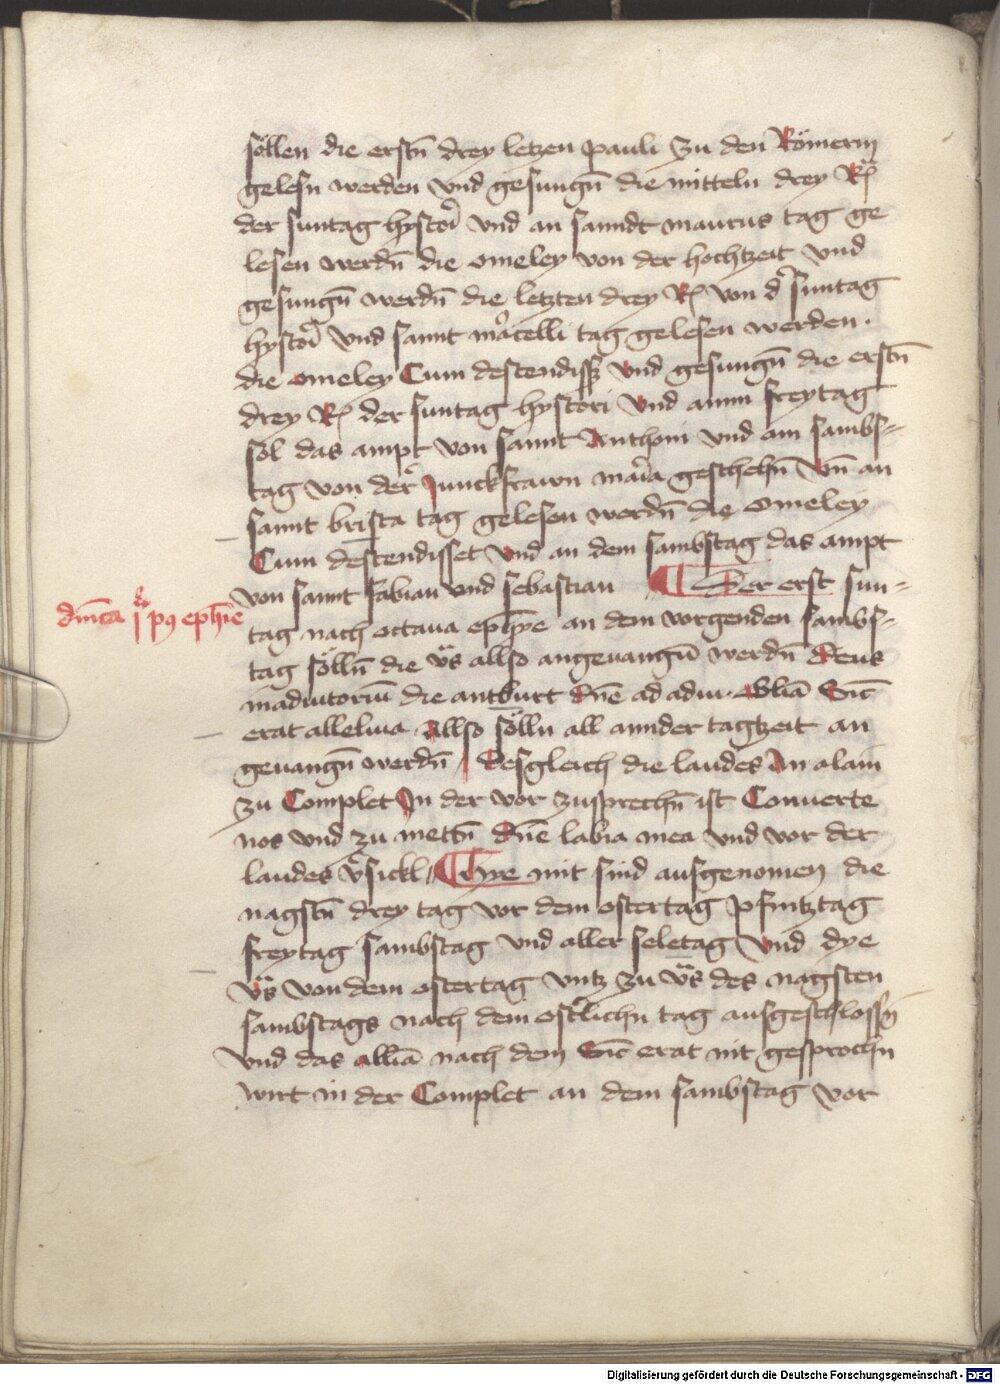 söllen die erstn̄ drey letzen pauli zu den Römern
gelesn werden vnd gesungn̄ die mitteln drey R̄
der suntag hystori vnd an sanndt maurus tag ge
lesen werdn̄ die omeley von der hochtzeit vnd
gesungn̄ werdn̄ die letzten drey R̄ von d̾ suntag
hystori vnd sannt m̾celli tag gelesen werden ·
die omeley Cum descendiss₃ vnd gesungn̄ die erstn̄
drey R̄ der suntag hystori vnd amm freytag
sol das ampt von sannt Anthoni vnd am sambs=
tag von der Junckfrawn maria geschehn̄ vn̄ an
sannt brista tag gelesen werdn̄ die omeley
Cum descendisset vnd an dem sambstag das ampt
von sannt fabian vnd sebastian ¶ Der erst sun=
dn̄ica j pꝰ eph̄ie
tag nach octaua eph̄ye an dem vorgenden sambs=
tag sölln̄ die v̄s allso angeuangn̄ werdn̄ Deus
inadiutoriū die antburt dn̄e ad adiu · Allīa Sic̄
erat alleluia Allso sölln all annder tagtzeit an
geuangn̄ werdn̄ / Desgleich die laudes An alain
zu Complet In der vor zusprechn̄ ist Conuerte
nos vnd zu mettn̄ dn̄e labia mea vnd vor der
laudes v̾sickl / ¶ Hye mit sind ausgenomen die
nagstn̄ drey tag vor dem ostertag pfintztag
freytag sambstag vnd aller seletag vnd dye
v̄s von dem ostertag vntz zu v̄s des nagsten
sambstags nach dem ost̾lichn tag ausgeschlossn̄
vnd das allīa nach dem Sic̄ erat nit gesprochn
wirt in der Complet an dem sambstag vor
Digitalisierung gefördert durch die Deutsche Forschungsgemeinschaft - DFG